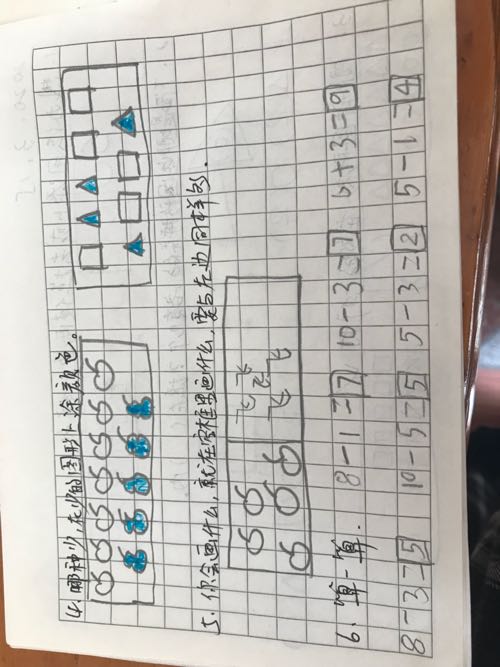 4.哪种少,在少的图形上涂颜色。
5.你会画什么,就在空框里画什么,要与左边同样多.
6.算一算. 8-1=7 10-3=7 6+3=9
8-3=5 10-5=5 5-3=2 5-1=4